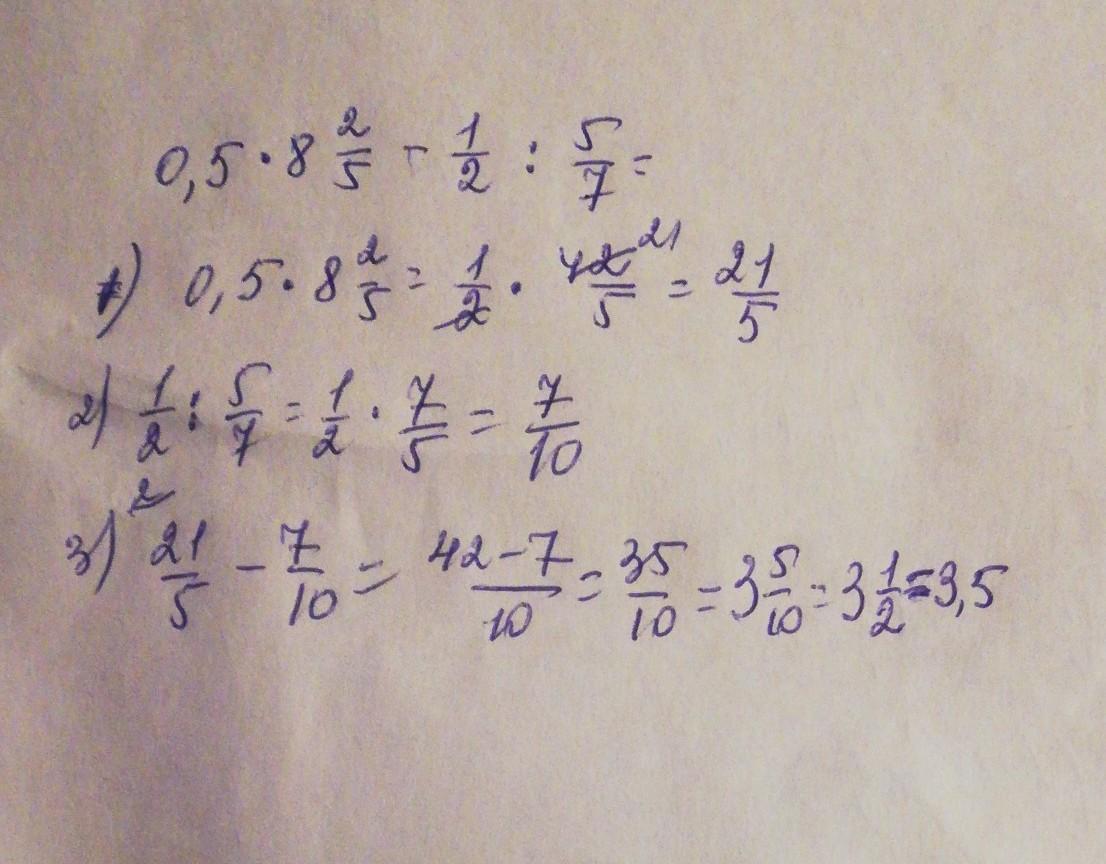 0,5 · 8 2/5 - 1/2 : 5/7 =
1) 0,5 · 8 2/5 = 1/2 · 42/5 21 = 21/5
2) 1/2 : 5/7 = 1/2 · 7/5 = 7/10
3) 2 21/5 - 7/10 = 42-7/10 = 35/10 = 3 5/10 = 3 1/2 = 3,5